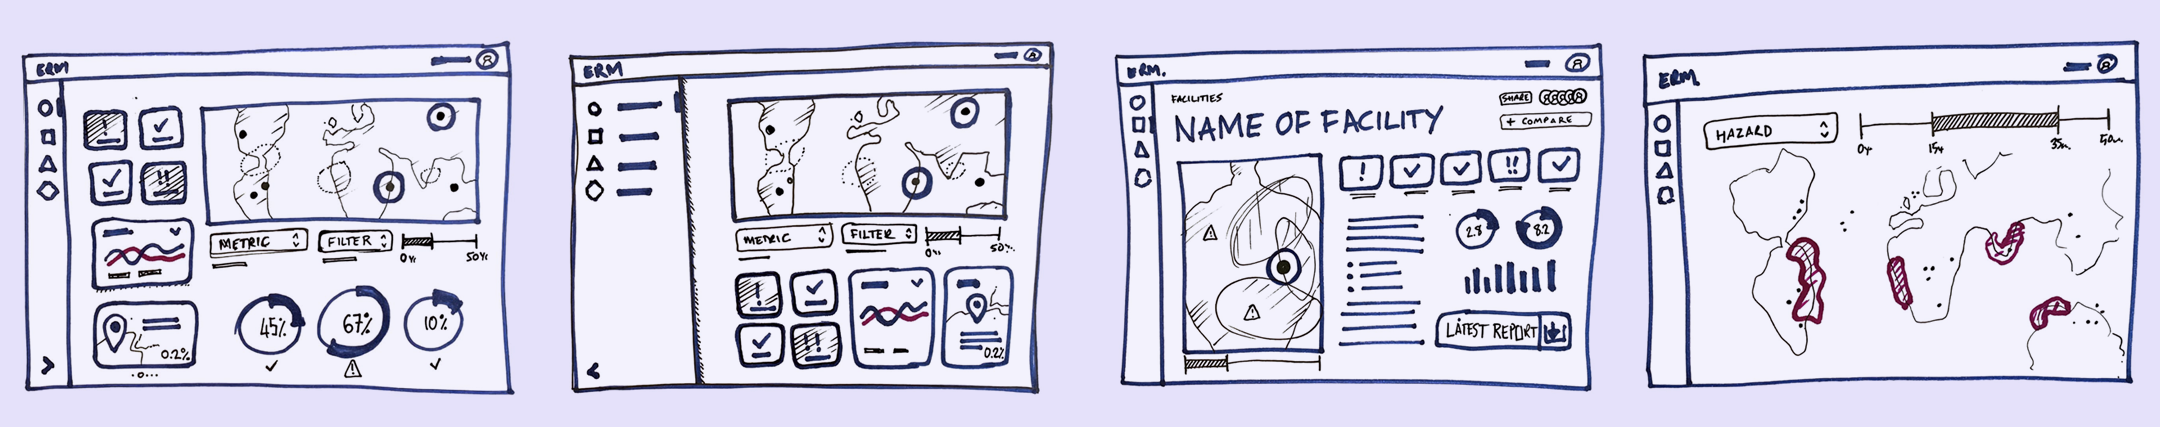 ERM
METRIC
FILTER
0yr
50yr
0.2%
45%
67%
10%
ERM
METRIC
FILTER
0yr
50yr
0.2%
ERM.
FACILITIES
SHARE
NAME OF FACILITY
+ COMPARE
2.8
8.2
LATEST REPORT
ERM
HAZARD
0yr
15yr
35yr
50yr